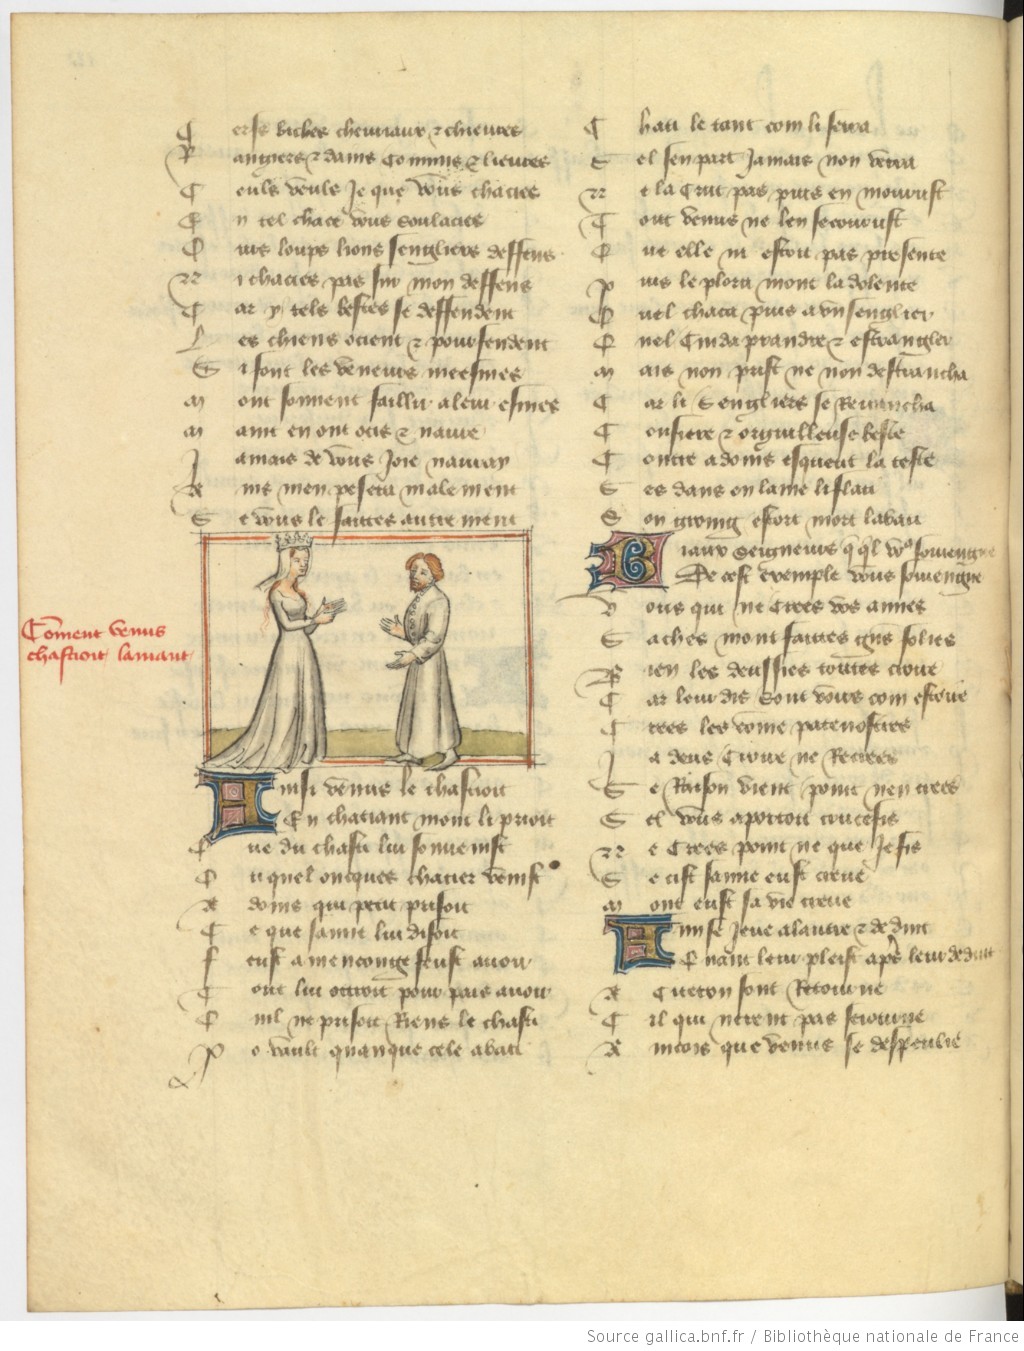 C erfs biches chevriaux & chievres
R angiers & dains Connins & lievres
C euls veuls Je que vous chaciés
E n tel chace vous soulaciés
O urs loups lions sengliers deffens
N i chaciés pas sur mon deffens
C ar y tels bestes se deffendent
L es chiens ocient & pourfendent
S i font les veneurs meesmes
M ont souvent faillir a leur esmes
M aint en ont ocis & navré
J amais de vous Joie navray
A ins men pesera malement
S e vous le faittes autrement
Coment venus
chastioit lamant
A insi venus le chastioit
En chatiant mont li prioit
Q ue du chasti lui souvenist
O u quel oncques chacier venist
A doins qui petit prisoit
C e que samie lui disoit
F eust a mençonge feust a voir
T out lui ottroit pour pais avoir
Q uil ne prisoit Riens le chasti
P o vault quanque cele a bati
C hati le tant com li serra
S el sen part Jamais non verra
N e la crut pas puis en mourust
C ont venus ne len secourust
Q ue elle ni estoit pas presente
P uis le plora mont la dolente
Q uel chaça puis a un senglier
Q uel Cuida prandre & estrangler
M ais non prist ne non destrancha
C ar li Sengliers se Revancha
C om fiere & orguilleuse beste
C ontre adoins esqueut la teste
S es dans en laine li flati
S on groing estort mort labati
B iaux seigneurs q̃ q̃l vo9 souviengne
De cest exemple vous souviengne
V ous qui ne creés vos amies
S achés mont faittes grans folies
B ien les deussiés touttes croire
C ar leur dis Sont voirs com estoire
C reés les come patenostres
J a deus Croire ne Recreés
S e Raison vient point nen creés
S el vous aportoit crucefis
N e Creés point ne que Je fis
S e cist samie eust creue
M ont eust sa vie creue
L un se Jeue a lautre & deduit
Quant leur pleist aprés leur deduit
A Citeron sont Retourné
C il qui nierent pas seiourné
A inçois que venus se despeulle
Source gallica.bnf.fr / Bibliothèque nationale de France